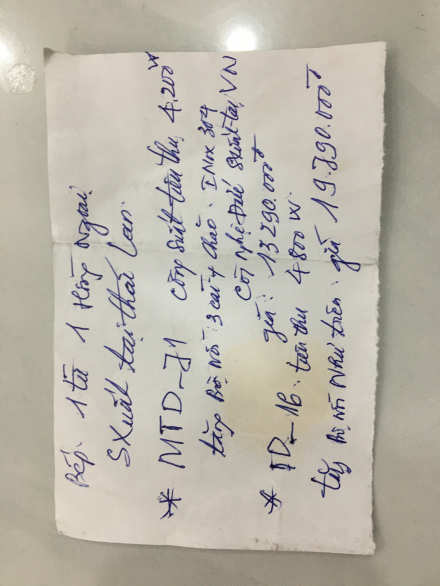 Bếp. 1 từ 1 Hồng Ngoại
SXuất tại thái lan.
* MTD_J1 công suất tiêu thụ 4.200 W
tặng Bộ Nồi 3 cái + chảo. INox 304
Công Nghệ Đức Sxuất tại VN
giá: 13290.000đ
* ID_16. tiêu thụ 4800 W.
tặng Bộ nồi Như trên. giá 19.790.000đ